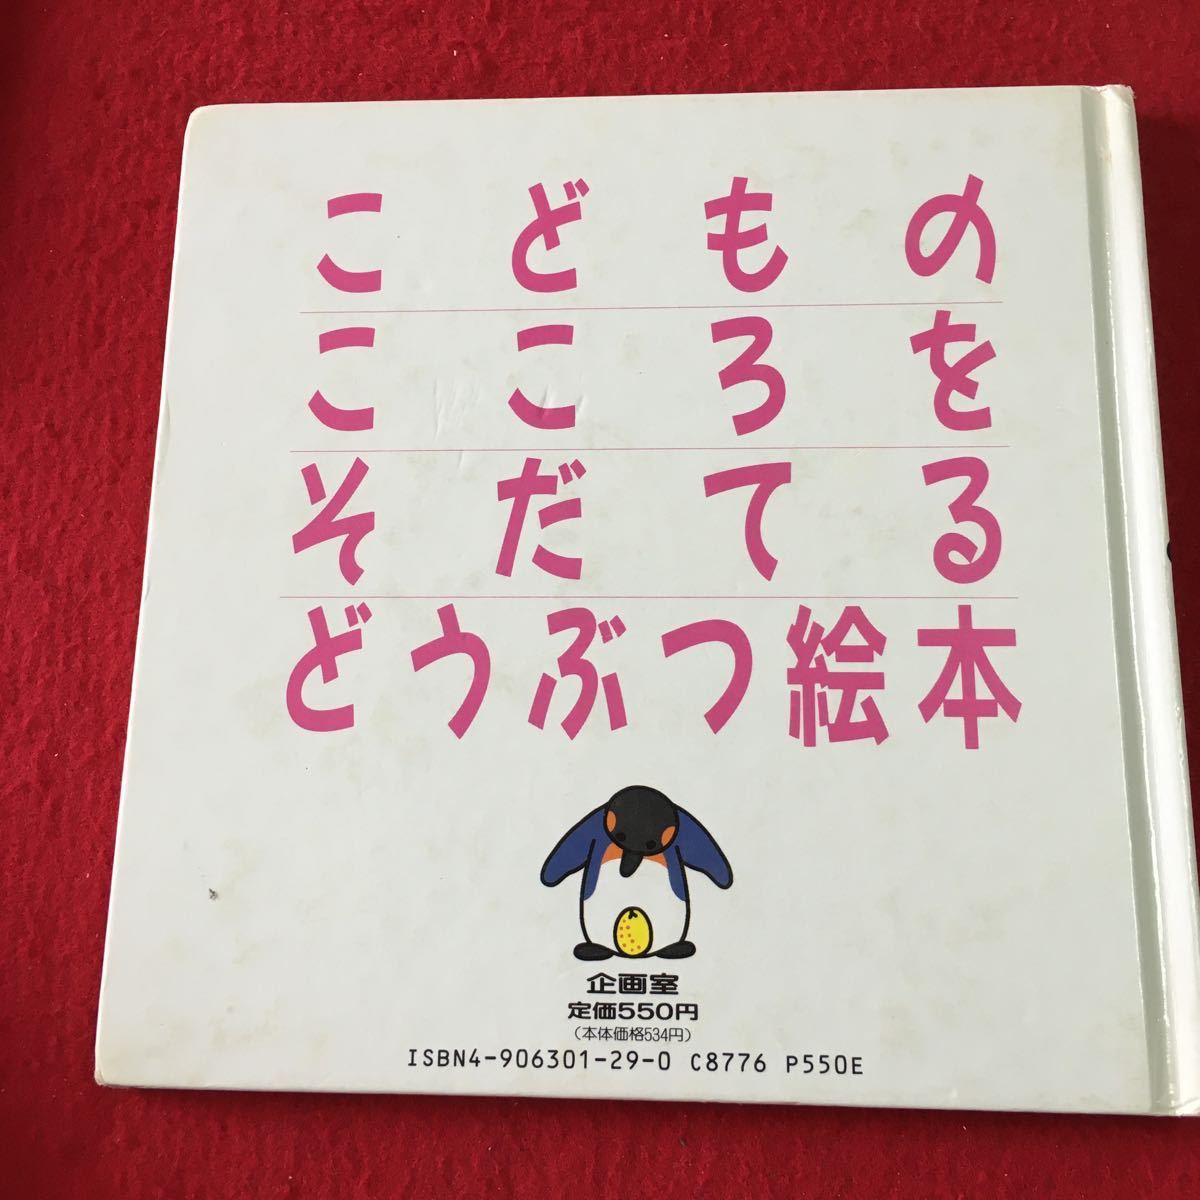 こどもの
こころを
そだてる
どうぶつ絵本
企画室
定価550円
(本体価格534円)
ISBN4-906301-29-0 C8776 P550E